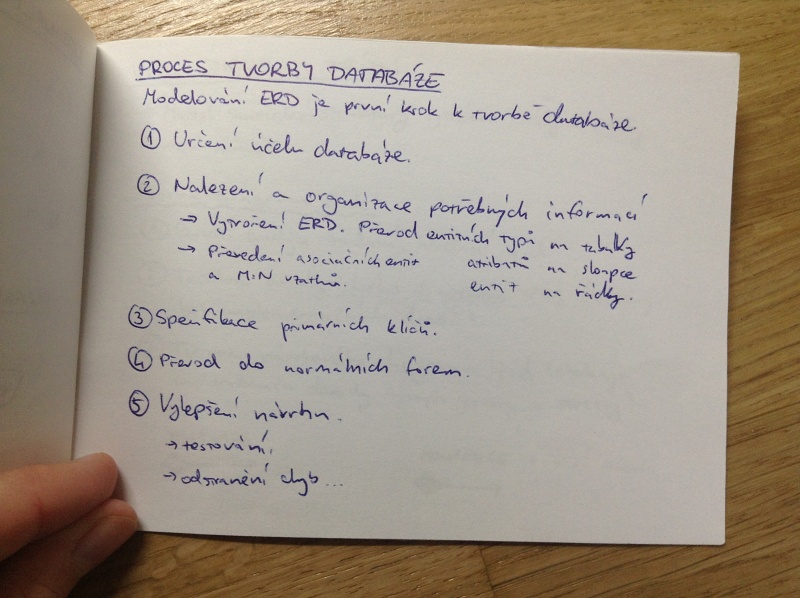 PROCES TVORBY DATABÁZE
Modelování ERD je první krok k tvorbě databáze.
① Určení účelu databáze.
② Nalezení a organizace potřebných informací
→ Vytvoření ERD. Převod entitních typů na tabulky
→ Převedení asociačních entit atributů na sloupce
a M:N vztahů. entit na řádky.
③ Specifikace primárních klíčů.
④ Převod do normálních forem.
⑤ Vylepšení návrhu.
→ testování,
→ odstranění chyb...